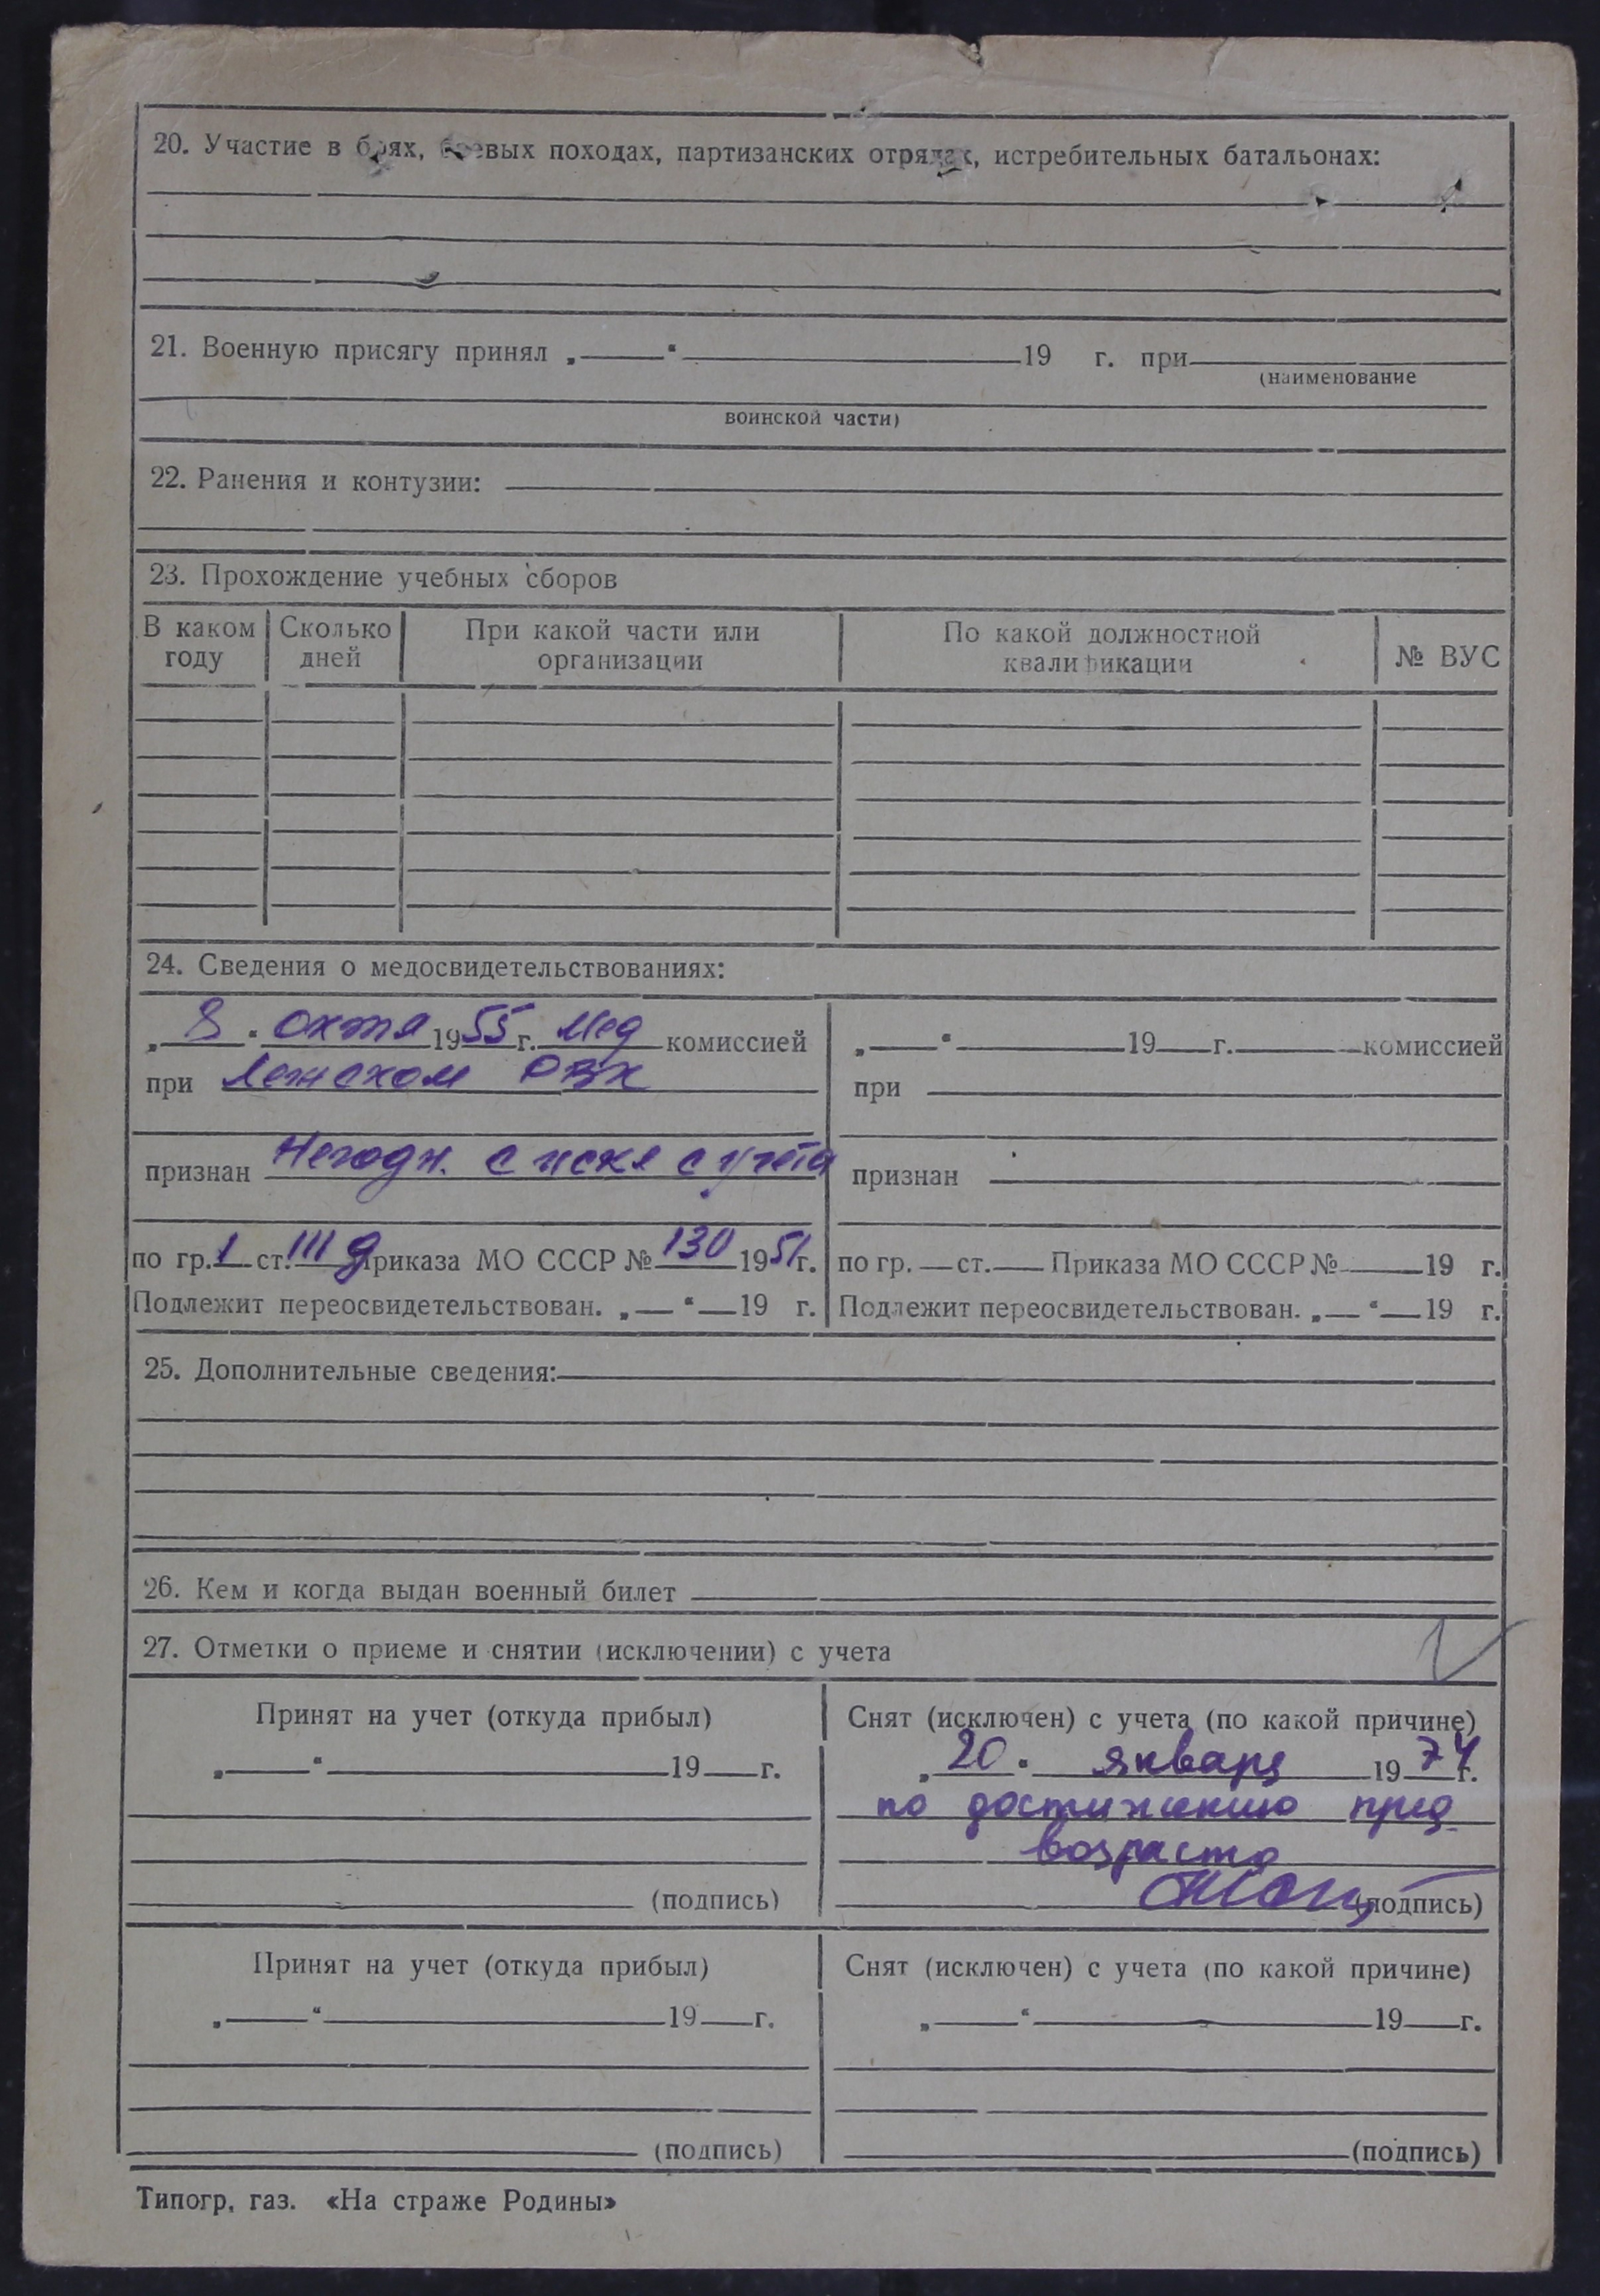 20. Участие в боях, боевых походах, партизанских отрядах, истребительных батальонах:
21. Военную присягу принял „ “ 19 г. при
(наименование
воинской части)
22. Ранения и контузии:
23. Прохождение учебных сборов
В каком году Сколько дней При какой части или организации По какой должностной квалификации № ВУС
24. Сведения о медосвидетельствованиях:
„ 8 “ октя 1955 г. Мед комиссией
при Ленском РВК
признан Негодн. с искл с учёта
по гр. 1 ст. III д Приказа МО СССР № 130 1951 г.
Подлежит переосвидетельствован. „ “ 19 г.
„ “ 19 г. комиссией
при
признан
по гр. ст. Приказа МО СССР № 19 г.
Подлежит переосвидетельствован. „ “ 19 г.
25. Дополнительные сведения:
26. Кем и когда выдан военный билет
27. Отметки о приеме и снятии (исключении) с учета
Принят на учет (откуда прибыл)
„ “ 19 г.
(подпись)
Снят (исключен) с учета (по какой причине)
„ 20 “ января 1974 г.
по достижению пред
возраста
(подпись)
Принят на учет (откуда прибыл)
„ “ 19 г.
(подпись)
Снят (исключен) с учета (по какой причине)
„ “ 19 г.
(подпись)
Типогр, газ. «На страже Родины»